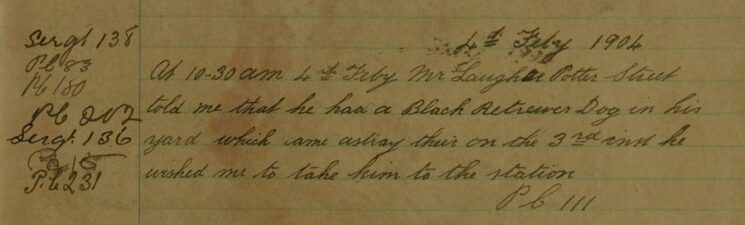 Sergt 138
Pb 83
Pb 180
Pb 207
Sergt 136
P.b 231
4th Feby 1904
At 10-30 am 4th Feby Mr Laugher Potter Street
told me that he had a Black Retreiver Dog in his
yard which came astray their on the 3rd inst he
wished me to take him to the station
P C 111